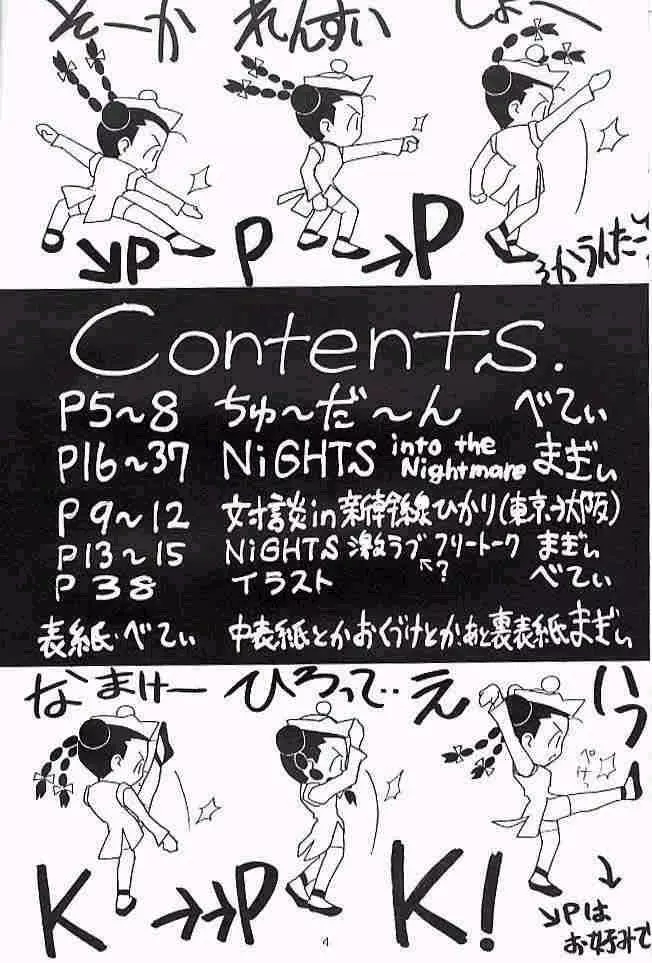 そーか れんすい しょー
↘P P →P
そかうんたーっ
Contents.
P5~8 ちゅ~だ~ん べてぃ
P16~37 NiGHTS into the Nightmare まぎぃ
P9~12 対談in新幹線ひかり(東京→大阪)
P13~15 NiGHTS 激ラブ フリートーク まぎぃ
←?
P38 イラスト べてぃ
表紙・べてぃ 中表紙とかおくづけとか、あと裏表紙まぎぃ
なまけー ひろって‥ えいっ
ぺけっ
K →→P K!
↓
↘Pは
お好みで
4